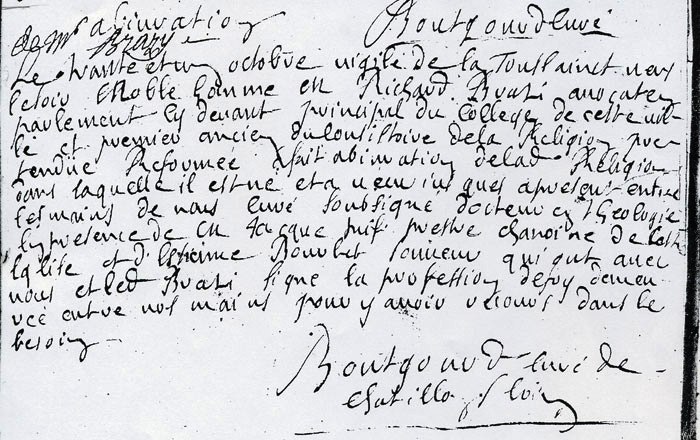 abiuration Boutgourd curé
de Mr Brazy
Le trante et un octobre vigile de la Toussainct vers
le soir Noble homme Me Richard Brazi avocat en
parlement cy devant principal du College de cette vil
le et premier ancien du Consistoire de la Religion pre
tendue Reformée a fait abiuration de lad Religion
dans laquelle il est né et a vecu iusques apresent entre
les mains de nous curé soubsigné docteur en Theologie
En presence de Me Jacque prestre chanoine de cette
Eglise et d'Estienne Bourbet qui ont avec
nous et led Brazi signé la profession de foy demeu
rée entre nos mains pour y avoir recours dans le
besoin
Boutgourd curé de
Chatillon s Loin